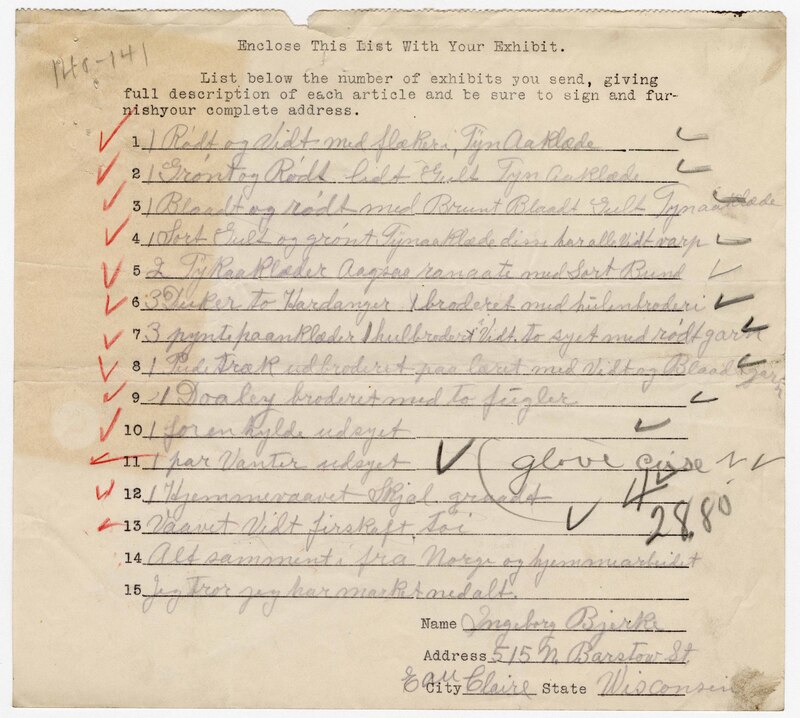 140-141
Enclose This List With Your Exhibit.
List below the number of exhibits you send, giving
full description of each article and be sure to sign and fur-
nishyour complete address.
1 1 Rødt og Vidt med flækeri, Tyn Aaklæde
2 1 Grønt og Rødt lidt Gult Tyn Aaklæde
3 1 Blaadt og rødt med Brunt Blaadt Gult Tynaaklæde
4 1 Sort Gult og grønt Tynaaklæde disse har alle Vidt varp
5 2 Tykaaklæder med Sort Bund
6 3 Duker to Hardanger 1 broderet med hulenbroderi
7 3 pyntepaanklæder 1 hulbrodert Vidt to syet med rødt garn
8 1 Pude Træk udbroderet paa læret med Vidt og Blaadt garn
9 1 Doaley broderet med to fugler
10 1 foren hylde udsyet
11 1 par Vanter udsyet (glove case
12 1 Hjemmevaavet Skjal graadt 4
13 Vaavet Vidt firskaft Toi 28.80
14 Alt samment i fra Norge og hjemmearbeidet
15 Jeg tror jeg har market ned alt.
Name Ingeborg Bjerke
Address 515 N Barstow St
Eau City Claire State Wisconsin